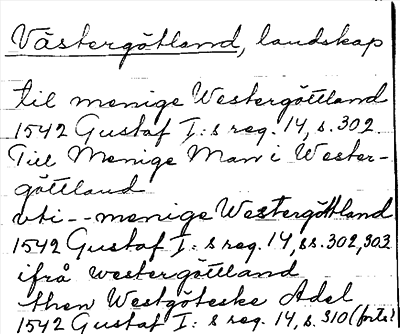 Västergötland, landskap
til menige Westergöttland
1542 Gustaf I:s reg. 14, s. 302
Till Menige Man i Wester-
göttland
vti -- menige Westergöttland
1542 Gustaf I:s reg. 14, ss. 302, 303
ifrå westergöttland
then Westgöteske Adel
1542 Gustaf I:s reg. 14, s. 310 (forts.)